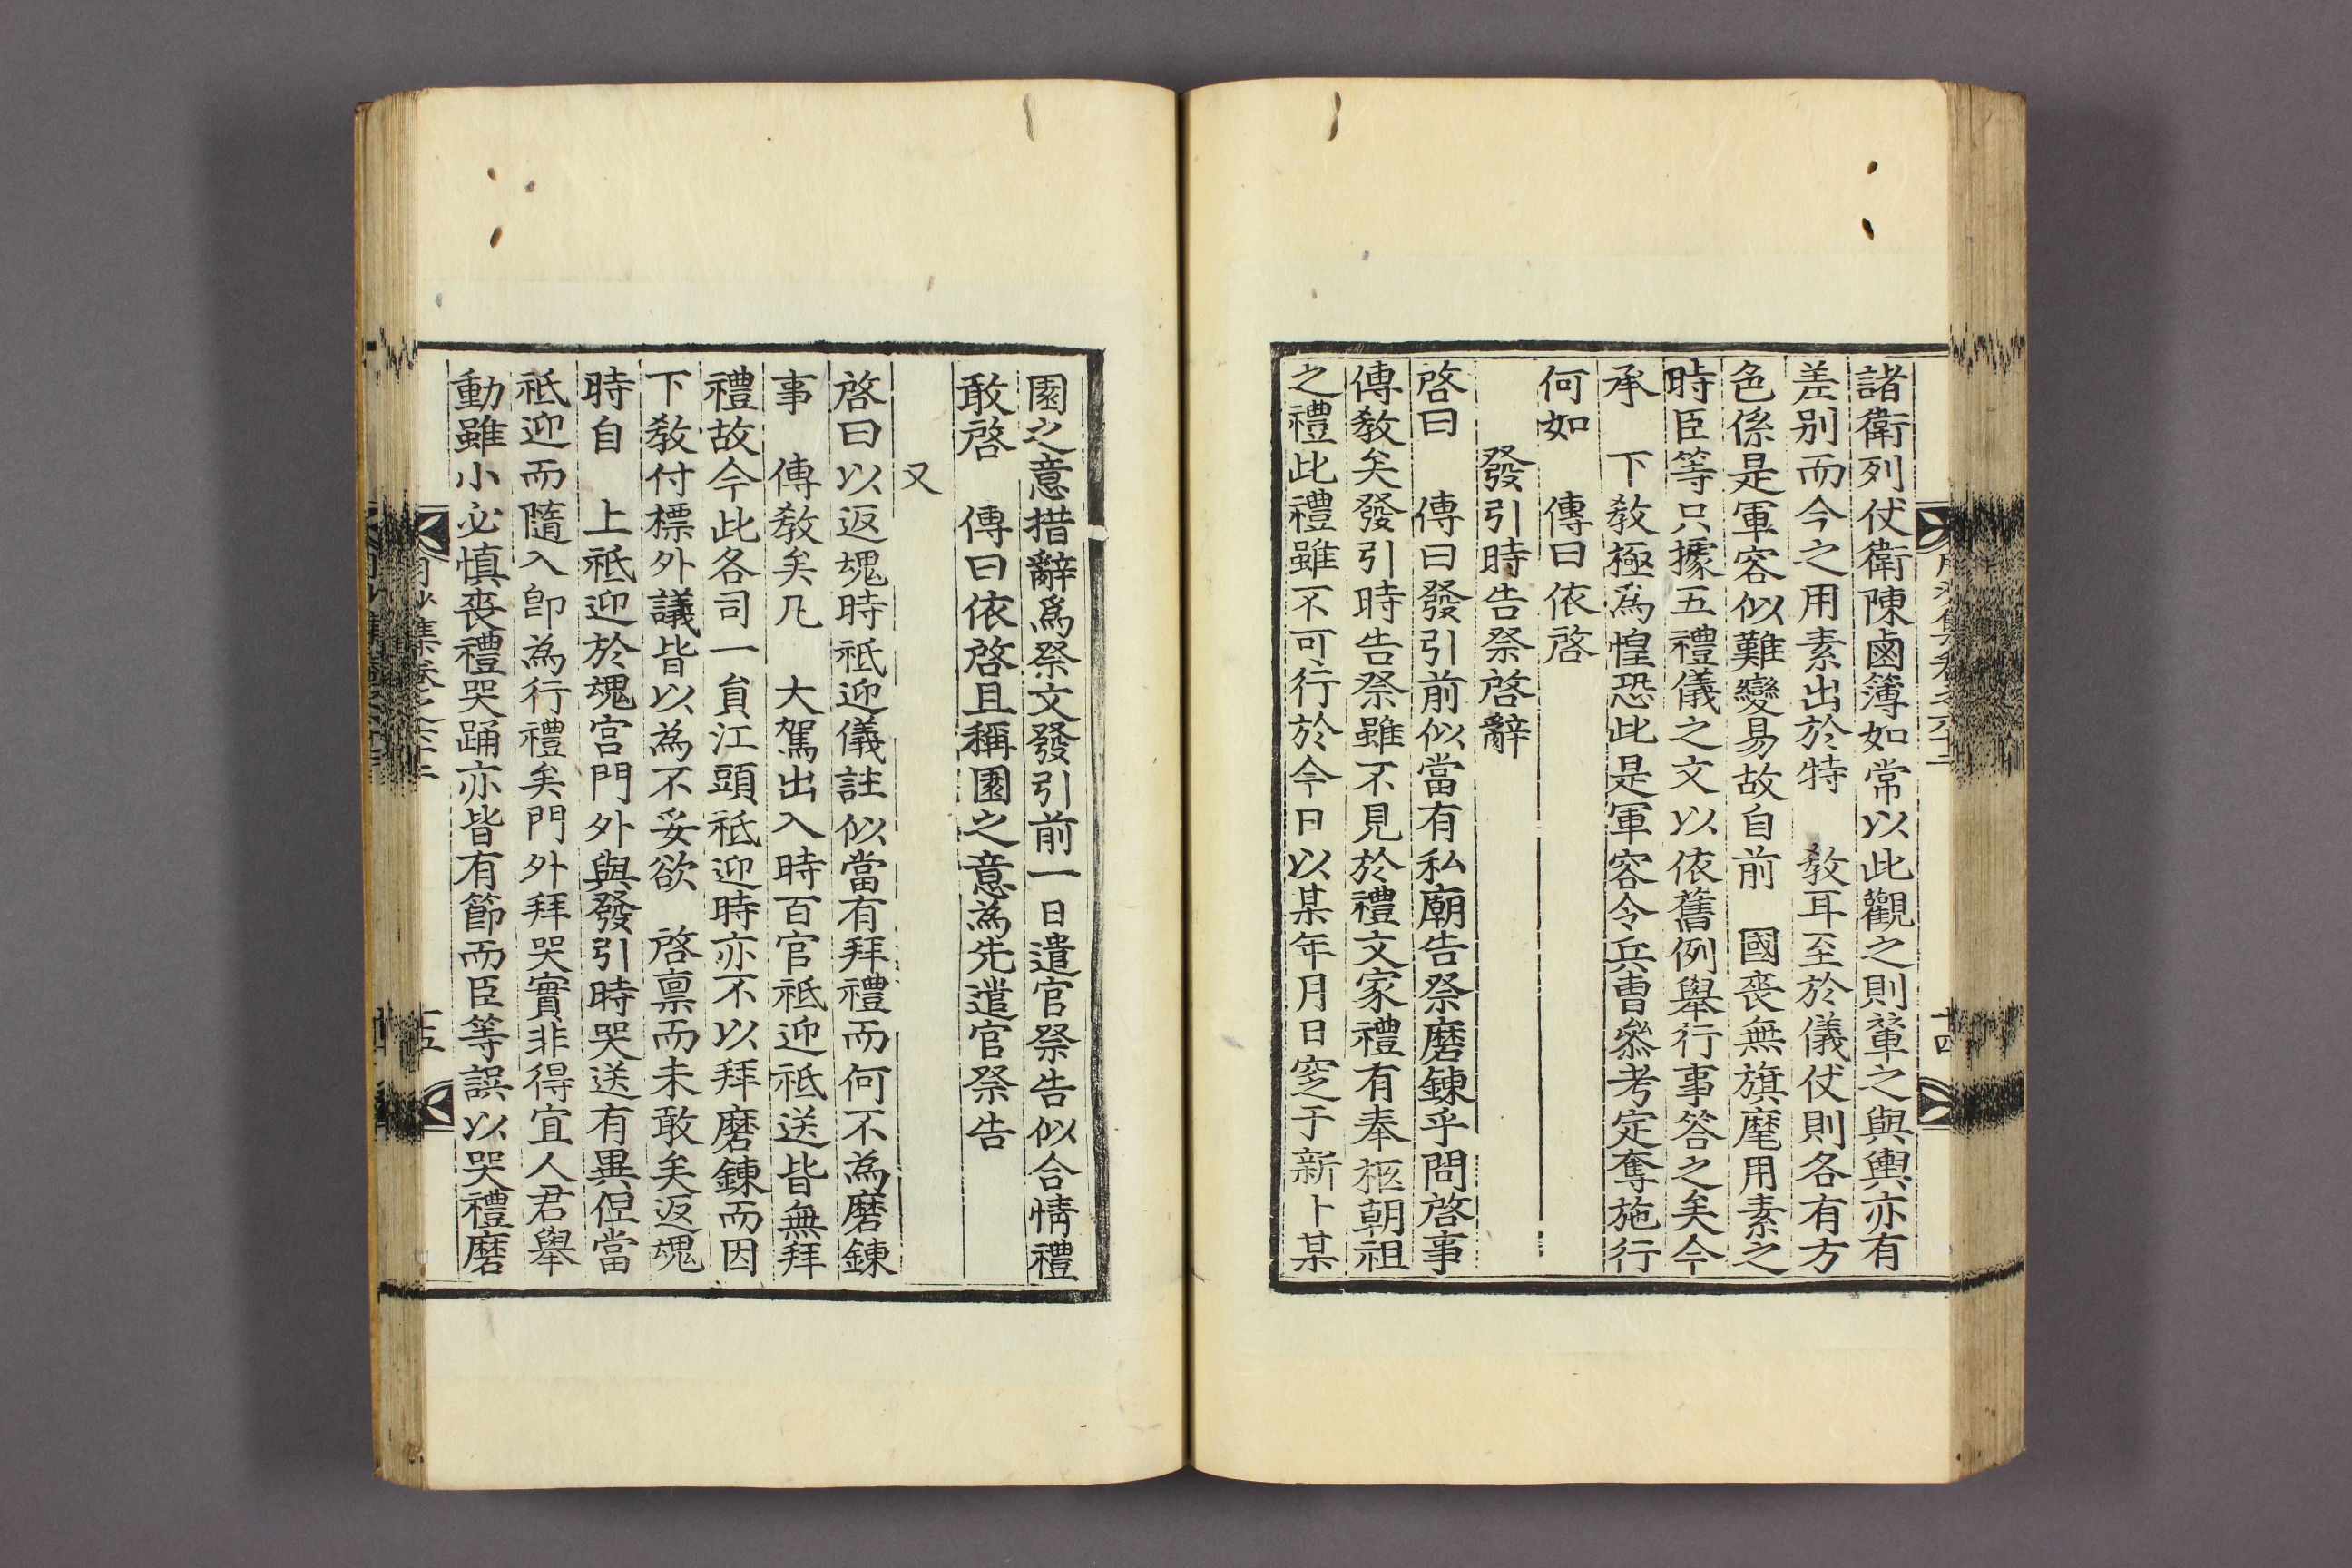 諸衛列仗衛陳鹵簿如常以此觀之則輦之與輿亦有
差别而今之用素出於特　教耳至於儀仗則各有方
色係是軍容似難變易故自前　國喪無旗麾用素之
時臣等只據五禮儀之文以依舊例舉行事答之矣今
承　下教極爲惶恐此是軍容令兵曹叅考定奪施行
何如　傳曰依啓
發引時告祭啓辭
啓曰　傳曰發引前似當有私廟告祭磨鍊乎問啓事
傳教矣發引時告祭雖不見於禮文家禮有奉柩朝祖
之禮此禮雖不可行於今日以某年月日窆于新卜某
園之意措辭爲祭文發引前一日遣官祭告似合情禮
敢啓　傳曰依啓且稱園之意為先遣官祭告
又
啓曰以返魂時祗迎儀註似當有拜禮而何不為磨鍊
事　傳教矣凡　大駕出入時百官祗迎祗送皆無拜
禮故今此各司一員江頭祗迎時亦不以拜磨鍊而因
下教付標外議皆以為不妥欲　啓禀而未敢矣返魂
時自　上祗迎於魂宮門外與發引時哭送有異但當
祗迎而隨入卽為行禮矣門外拜哭實非得宜人君舉
動雖小必慎喪禮哭踊亦皆有節而臣等誤以哭禮磨